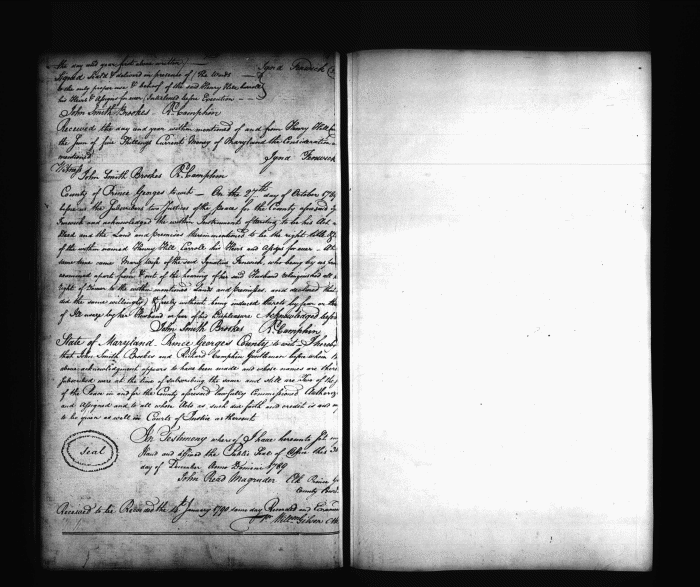 the day and year first above written)
Signed Seald & delivered in presence of (the words Ignd Fenwick
to the only proper use & behoof of the said Henry Hill Carroll
his Heirs & Assigns forever, Interlined before Execution
John Smith Brookes Rd Camphin
Received the day and year within mentioned of and from Henry Hill
the Sum of five Shillings Current Money of Maryland the Consideration
mentioned Ignd Fenwick
Witness
John Smith Brookes Rd Camphin
County of Prince Georges to wit On the 27th day of October 1789
before the Subscribers two Justices of the peace of the County aforesaid
Fenwick and acknowledged the within Instrument of writing to be his Act
Deed and the Land and premises therein mentioned to be the right title
of the within named Henry Hill Carroll his Heirs and Assigns forever At
same time came Mary wife of the said Ignatius Fenwick, who being by us
examined apart from & out of the hearing of her said Husband relinquished all
right of dower to the within mentioned Lands and premises and declared that
did the same willingly & freely without being induced thereto by fear or
of Ill usage by her Husband or fear of his Displeasure Acknowledged before
John Smith Brookes Rd Camphin
State of Maryland Prince Georges County to wit I hereby
that John Smith Brookes and Richard Camphin Gentlemen before whom
above acknowledgment appears to have been made and whose names are there
subscribed were at the time of subscribing the same and still are Two of the
of the Peace in and for the County aforesaid lawfully Commissioned Authoriz
and Assigned and to all whose Acts as such due faith and credit is and
to be given as well in Courts of Justice as thereout
In Testimony whereof I have hereunto set my
Hand and affixed the Public Seal of Office this
Seal
day of December Anno Domini 1789
John Read Magruder Clk Prince
County Court
Received to be Recorded the 14th January 1790 same day Recorded and Examined